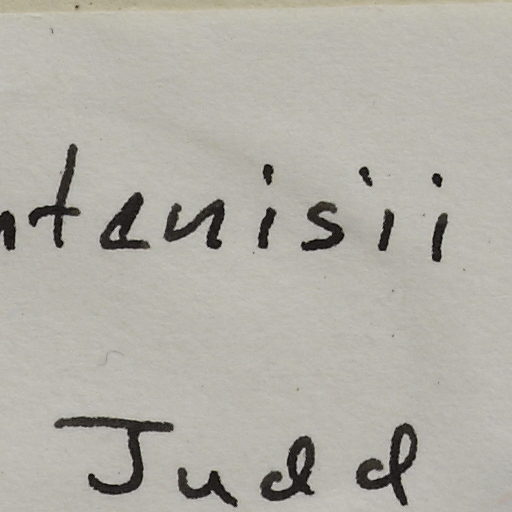 ntenisii
Judd